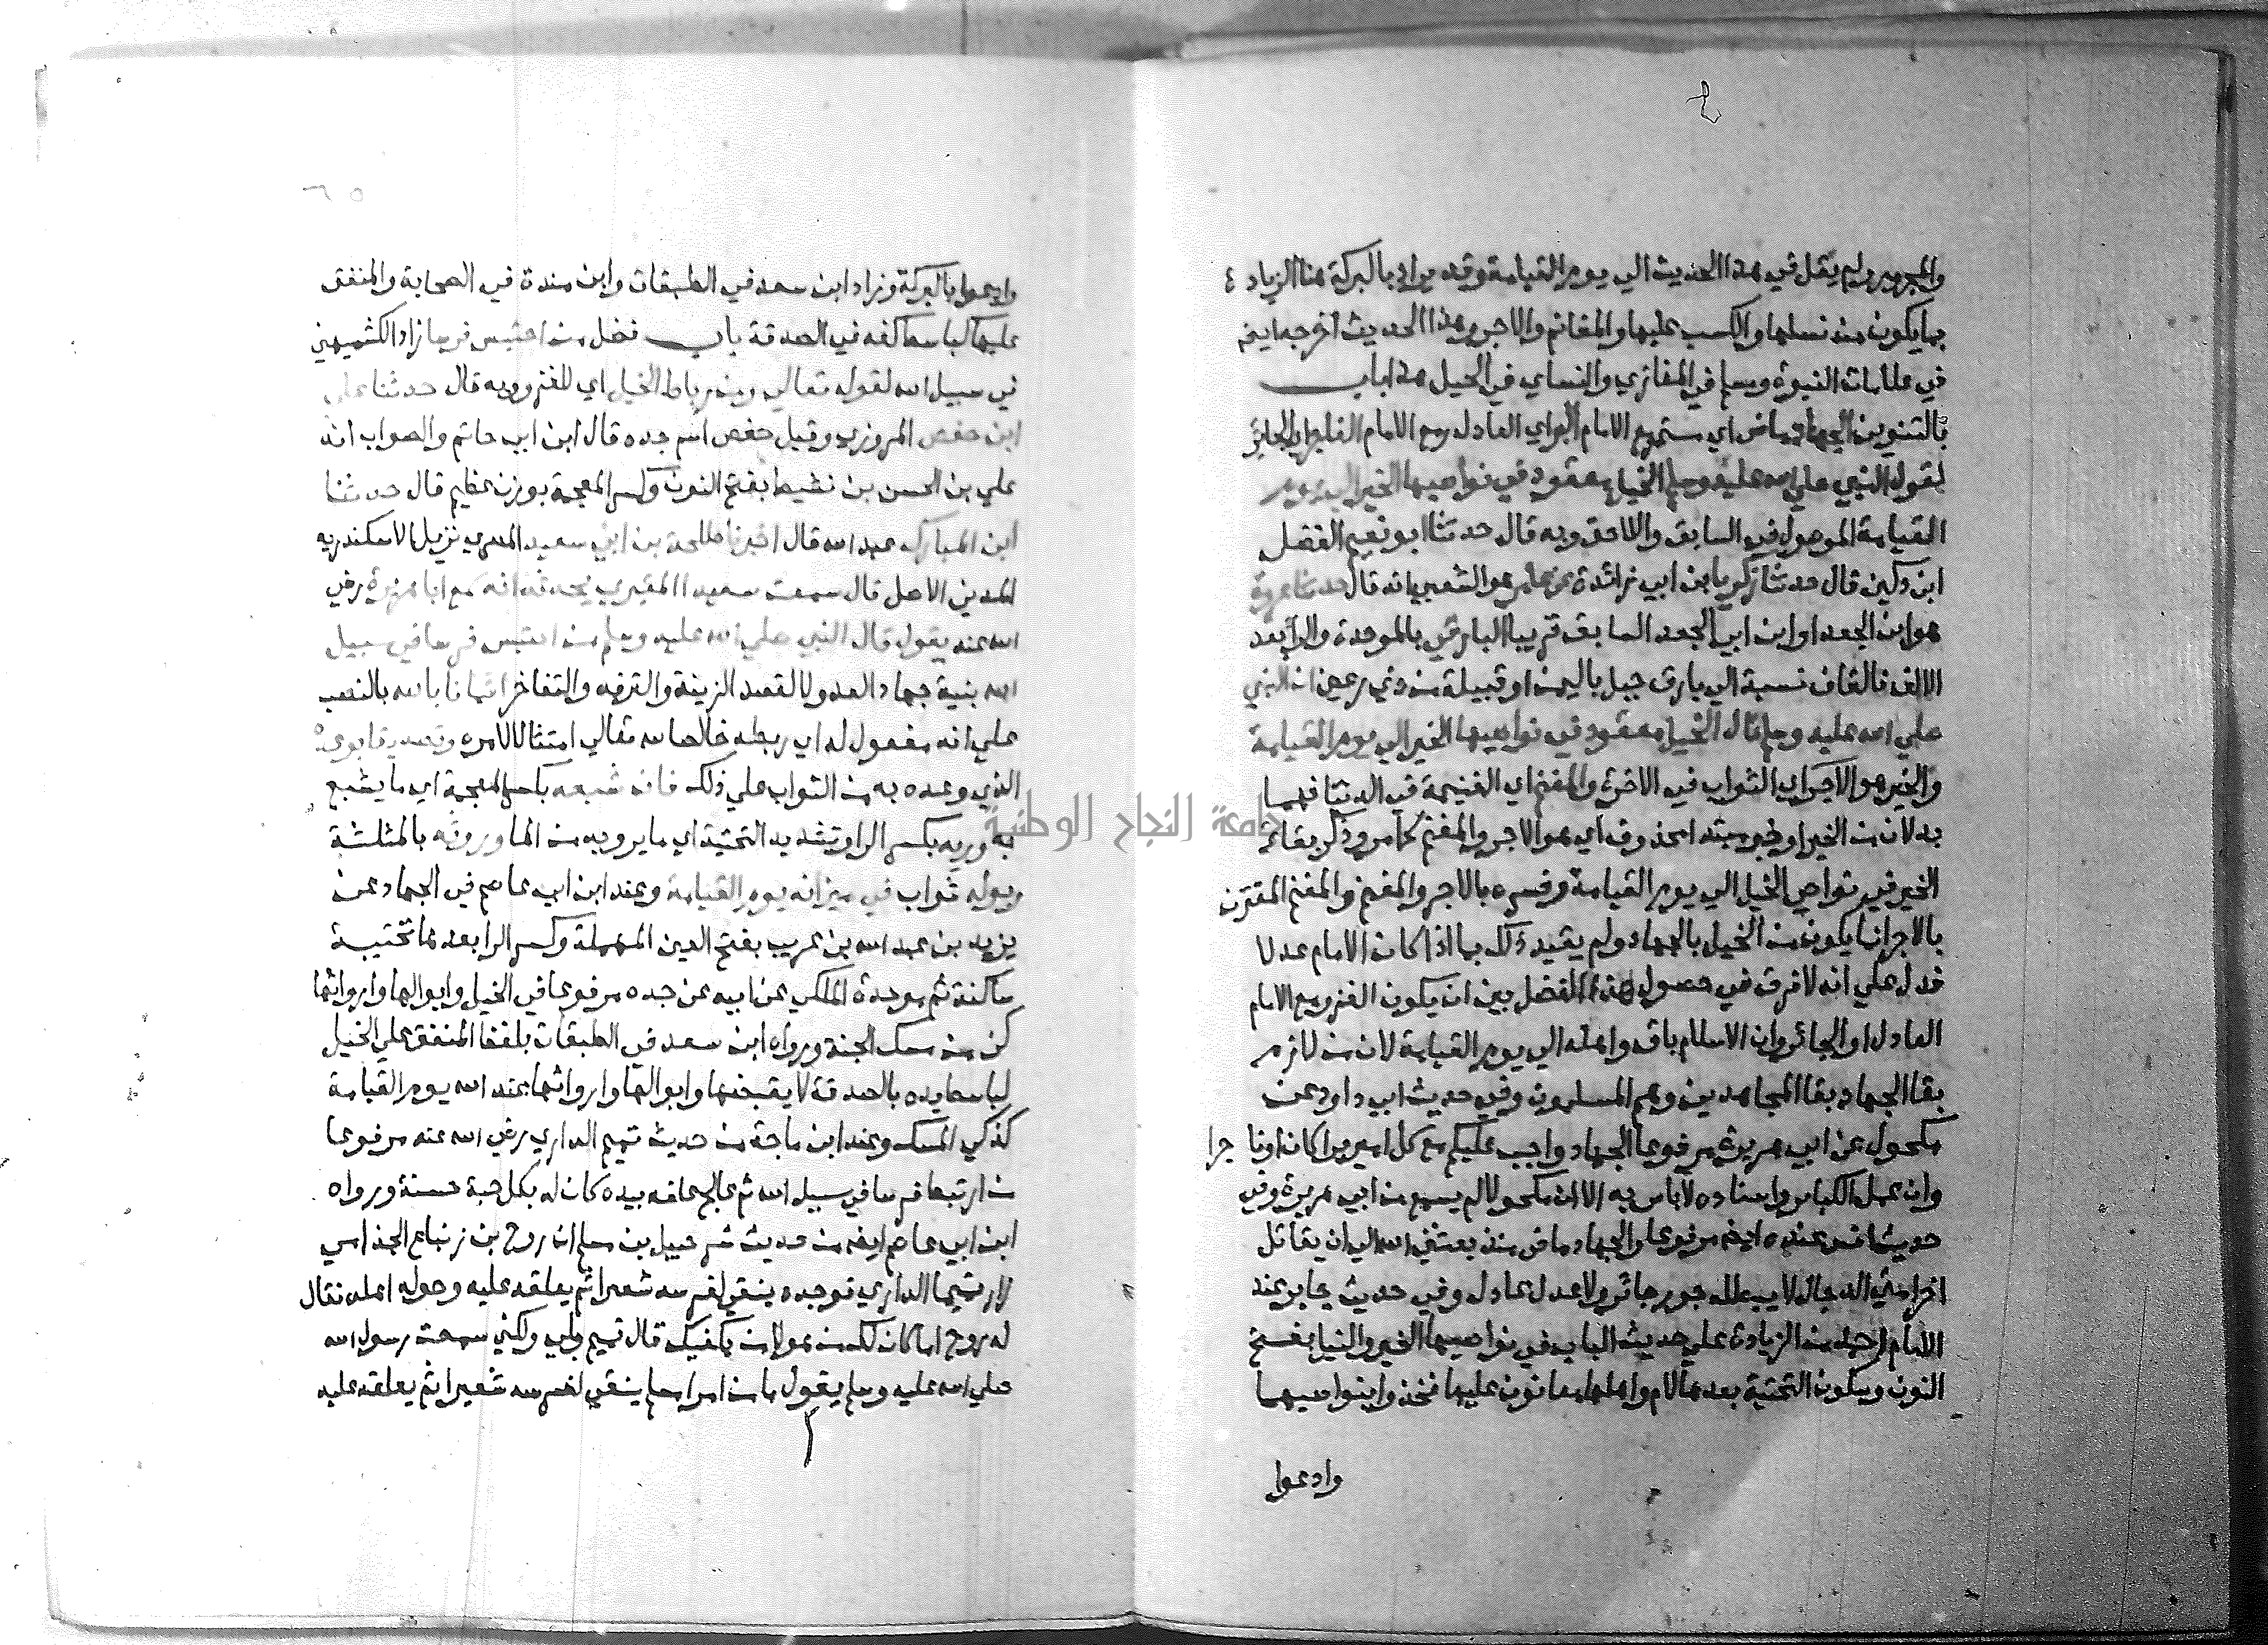 والمجرور ولم يقل في هذا الحديث الى يوم القيامة وقد يراد بالبركة هنا الزيادة
بما يكون من نسلها والكسب عليها والمغانم والاجر وهذا الحديث اخرجه ايضا
في علامات النبوة ومسلم في المغازي والنساي في الخيل هذا باب
بالتنوين الجهاد ماض اي مستمر مع الامام البر اي العادل ومع الامام الفاجر اي الجائر
لقول النبي صلى الله عليه وسلم الخيل معقود في نواصيها الخير الى يوم
القيامة الموصول في السابق واللاحق وبه قال حدثنا ابو نعيم الفضل
ابن دكين قال حدثنا زكريا بن ابي زائدة عن عامر هو الشعبي انه قال حدثنا عروة
هو ابن الجعد او ابن ابي الجعد السابق قريبا البارقي بالموحدة والرا بعد
الالف فالقاف نسبة الى بارق جبل باليمن او قبيلة من ذي رعين ان النبي
صلى الله عليه وسلم قال الخيل معقود في نواصيها الخير الى يوم القيامة
والخير هو الاجر اي الثواب في الاخرة والمغنم اي الغنيمة في الدنيا فهما
بدلان من الخير او خبر مبتدا محذوف اي هو الاجر والمغنم كما مر وذكر بقاء
الخير في نواصي الخيل الى يوم القيامة وفسره بالاجر والمغنم والمغنم المقترن
بالاجر انما يكون من الخيل بالجهاد ولم يقيد ذلك بما اذا كان الامام عدلا
فدل على انه لا فرق في حصول هذا الفضل بين ان يكون الغزو مع الامام
العادل او الجائر وان الاسلام باق واهله الى يوم القيامة لان من لازم
بقا الجهاد بقا المجاهدين وهم المسلمون وفي حديث ابي داود عن
مكحول عن ابي هريرة مرفوعا الجهاد واجب عليكم مع كل امير برا كان او فاجرا
وان عمل الكباير واسناده لا باس به الا ان مكحولا لم يسمع من ابي هريرة وفي
حديث انس عنده ايضا مرفوعا والجهاد ماض منذ بعثني الله الى ان يقاتل
اخر امتي الدجال لا يبطله جور جائر ولا عدل عادل وفي حديث جابر عند
الامام احمد من الزيادة على حديث الباب في نواصيها الخير والنيل بفتح
النون وسكون التحتية بعدها لام واهلها معانون عليها فخذوا بنواصيها
وادعوا
٦٥
وادعوا بالبركة وزاد ابن سعد في الطبقات وابن مندة في الصحابة والمنفق
عليها كباسط كفه في الصدقة باب فضل من احتبس فرسا زاد الكشميهني
في سبيل الله لقوله تعالى ومن رباط الخيل اي للغزو وبه قال حدثنا علي
ابن حفص المروزي وقيل حفص اسم جده قال ابن ابي حاتم والصواب انه
علي بن الحسن بن نشيط بفتح النون وكسر المعجمة بوزن عظيم قال حدثنا
ابن المبارك عبد الله قال اخبرنا طلحة بن ابي سعيد المصري نزيل الاسكندريه
المديني الاصل قال سمعت سعيدا المقبري يحدث انه سمع ابا هريرة رضي
الله عنه يقول قال النبي صلى الله عليه وسلم من احتبس فرسا في سبيل
الله بنية جهاد العدو لا لقصد الزينة والترفه والتفاخر ايمانا بالله بالنصب
على انه مفعول له اي ربطه خالصا لله تعالى امتثالا لامره وتصديقا بوعده
الذي وعده به من الثواب على ذلك فان شبعه بكسر المعجمة اي ما يشبع
به وريه بكسر الرا وتشديد التحتية اي ما يرويه من الما وروثه بالمثلثة
وبوله ثواب في ميزانه يوم القيامة وعند ابن ابي عاصم في الجهاد عن
يزيد بن عبد الله بن عريب بفتح العين المهملة وكسر الرا بعدها تحتية
ساكنة ثم موحدة المليكي عن ابيه عن جده مرفوعا في الخيل وابوالها وارواثها
كف من مسك الجنة ورواه ابن سعد في الطبقات بلفظ المنفق على الخيل
كباسط يده بالصدقة لا يقبضها وابوالها وارواثها عند الله يوم القيامة
كذكي المسك وعند ابن ماجة من حديث تميم الداري رضي الله عنه مرفوعا
من ارتبط فرسا في سبيل الله ثم عالج علفه بيده كان له بكل حبة حسنة ورواه
ابن ابي عاصم ايضا من حديث شرحبيل بن مسلم ان روح بن زنباع الجذامي
زار تميما الداري فوجده ينقي لفرسه شعيرا ثم يعلقه عليه وحوله اهله فقال
له روح اما كان لك من هولا من يكفيك قال تميم بلى ولكني سمعت رسول الله
صلى الله عليه وسلم يقول ما من امرا مسلم ينقي لفرسه شعيرا ثم يعلقه عليه
جامعة النجاح الوطنية